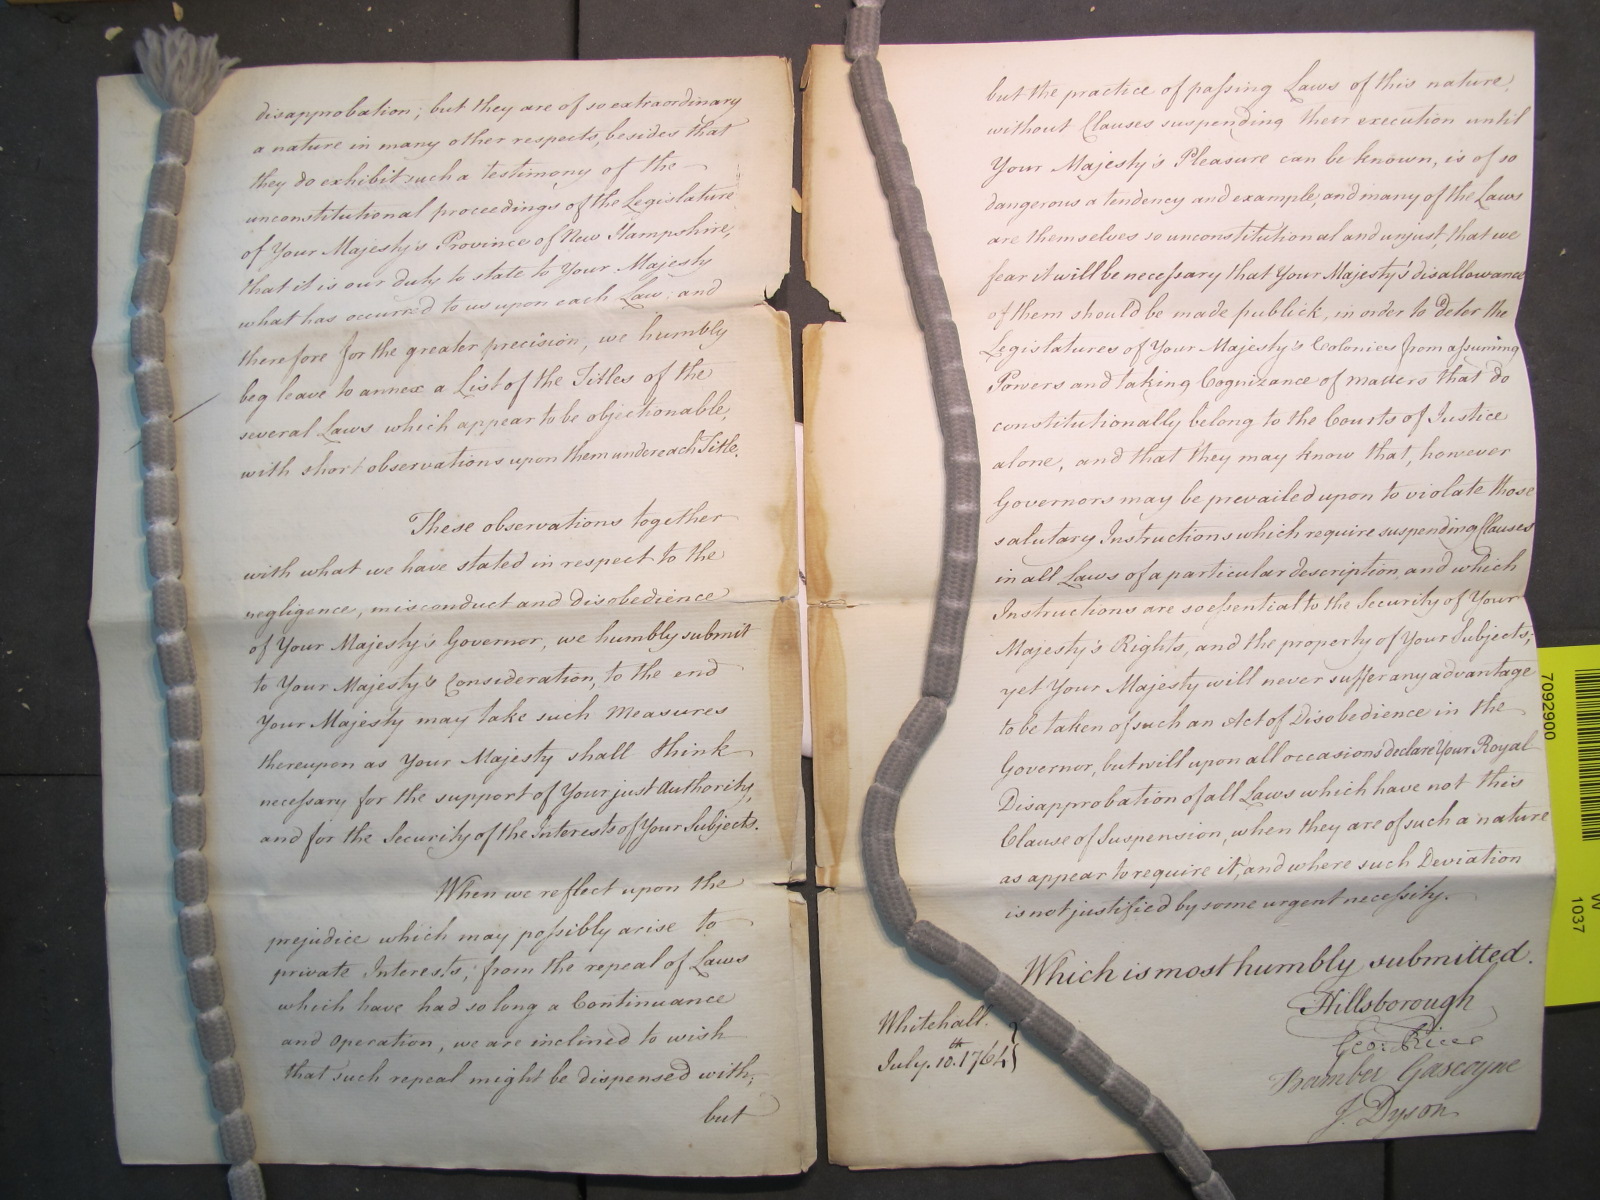 disapprobation; but they are of so extraordinary
a nature in many other respects, besides that
they do exhibit such a testimony of the
unconstitutional proceedings of the Legislature
of Your Majesty's Province of New Hampshire,
that it is our duty to state to Your Majesty
what has occurred to us upon each Law; and
therefore for the greater precision, we humbly
beg leave to annex a List of the Titles of the
several Laws which appear to be objectionable,
with short observations upon them under each Title.
These observations together
with what we have stated in respect to the
negligence, misconduct and disobedience
of Your Majesty's Governor, we humbly submit
to Your Majesty's Consideration, to the end
Your Majesty may take such Measures
thereupon as Your Majesty shall think
necessary for the support of Your just Authority,
and for the Security of the Interests of Your Subjects.
When we reflect upon the
prejudice which may possibly arise to
private Interests, from the repeal of Laws
which have had so long a Continuance
and Operation, we are inclined to wish
that such repeal might be dispensed with;
but
but the practice of passing Laws of this nature,
without Clauses suspending their execution until
Your Majesty's Pleasure can be known, is of so
dangerous a tendency and example, and many of the Laws
are themselves so unconstitutional and unjust, that we
fear it will be necessary that Your Majesty's disallowance
of them should be made publick, in order to deter the
Legislatures of Your Majesty's Colonies from assuming
Powers and taking Cognizance of matters that do
constitutionally belong to the Courts of Justice
alone, and that they may know that, however
Governors may be prevailed upon to violate those
salutary Instructions which require suspending Clauses
in all Laws of a particular description, and which
Instructions are so essential to the Security of Your
Majesty's Rights, and the property of Your Subjects;
yet Your Majesty will never suffer any advantage
to be taken of such an Act of Disobedience in the
Governor, but will upon all occasions declare Your Royal
Disapprobation of all Laws which have not this
Clause of Suspension, when they are of such a nature
as appear to require it, and where such Deviation
is not justified by some urgent necessity.
Which is most humbly submitted.
Hillsborough
Geo: Rice
Bamber Gascoyne
J. Dyson
Whitehall.
July. 10th. 1764
7092900
1037